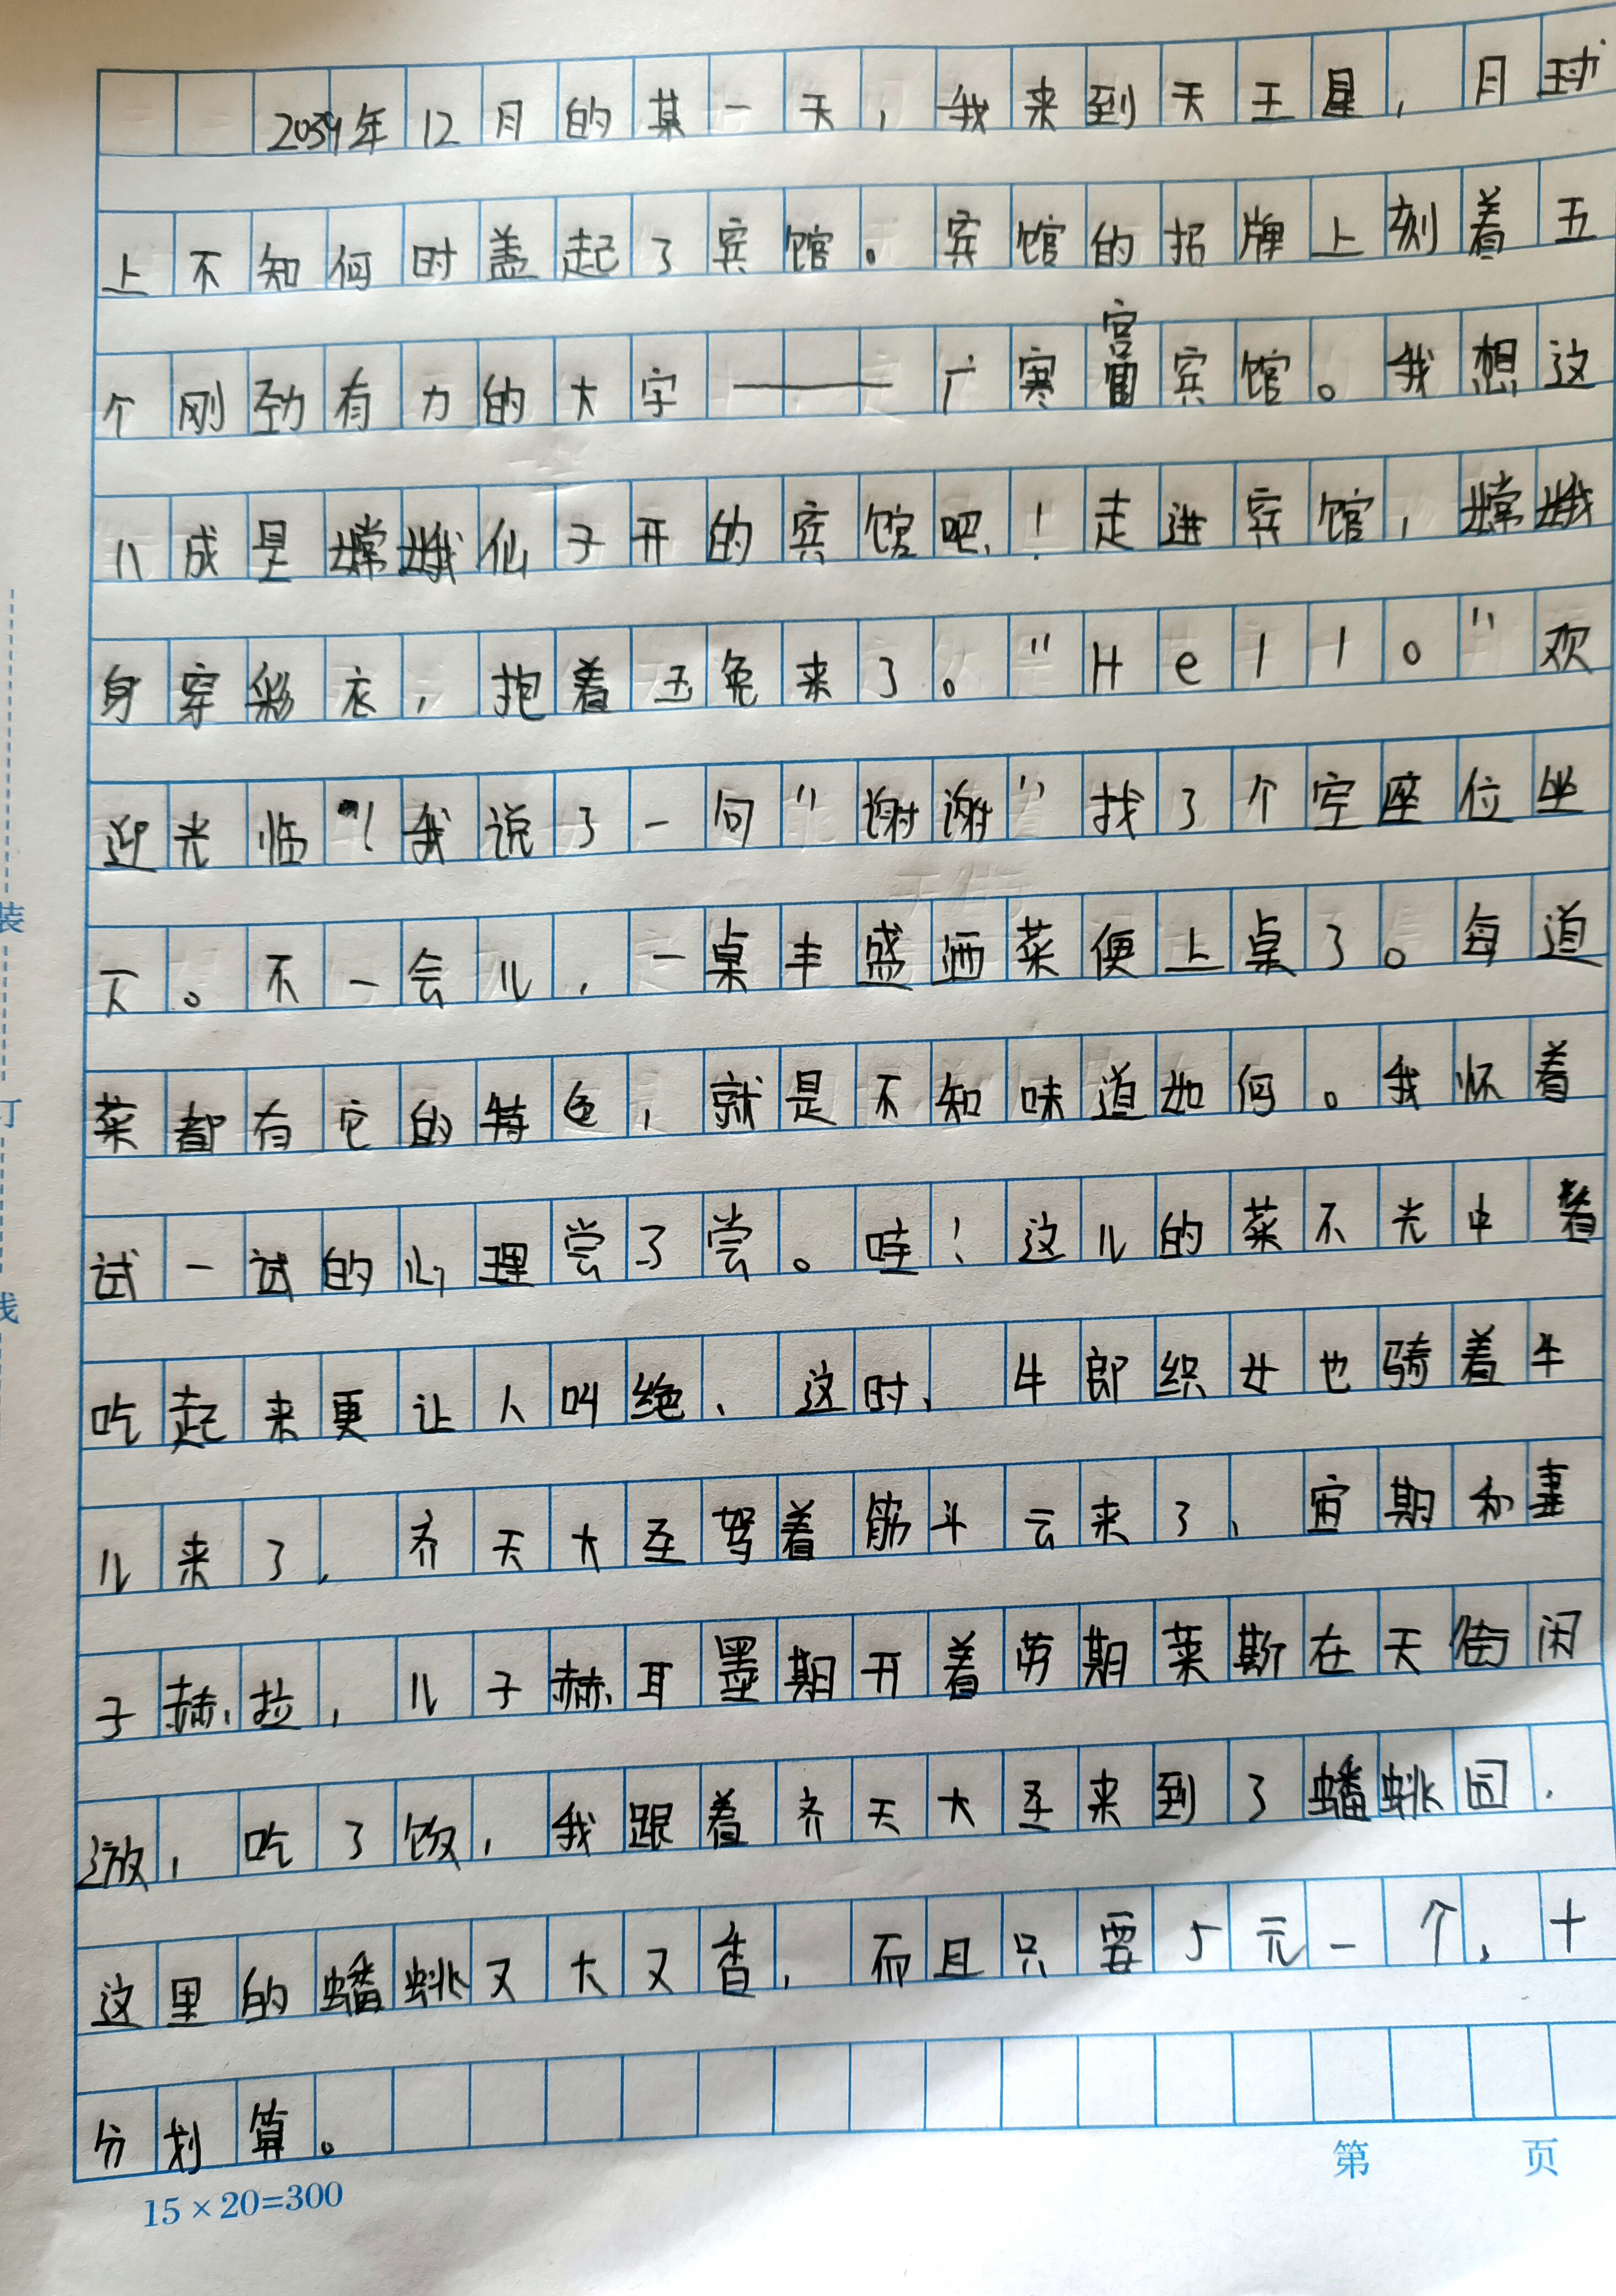 2039年12月的某一天，我来到天王星，月球
上不知何时盖起了宾馆。宾馆的招牌上刻着五
个刚劲有力的大字——广寒宫宾馆。我想这
八成是嫦娥仙子开的宾馆吧！走进宾馆，嫦娥
身穿彩衣，抱着玉兔来了。"Hello"欢
迎光临"！我说了一句"谢谢"找了个空座位坐
下。不一会儿，一桌丰盛洒菜便上桌了。每道
菜都有它的特色，就是不知味道如何。我怀着
试一试的心理尝了尝。哇！这儿的菜不光中看
吃起来更让人叫绝、这时、牛郎织女也骑着牛
儿来了，齐天大圣驾着筋斗云来了、宙期和妻
子赫拉，儿子赫耳墨期开着劳期莱斯在天街闲
逛，吃了饭，我跟着齐天大圣来到了蟠蛛园．
这里的蟠蛛又大又香，而且只要5元一个，十
分划算。
装
订
线
第 页
15×20=300